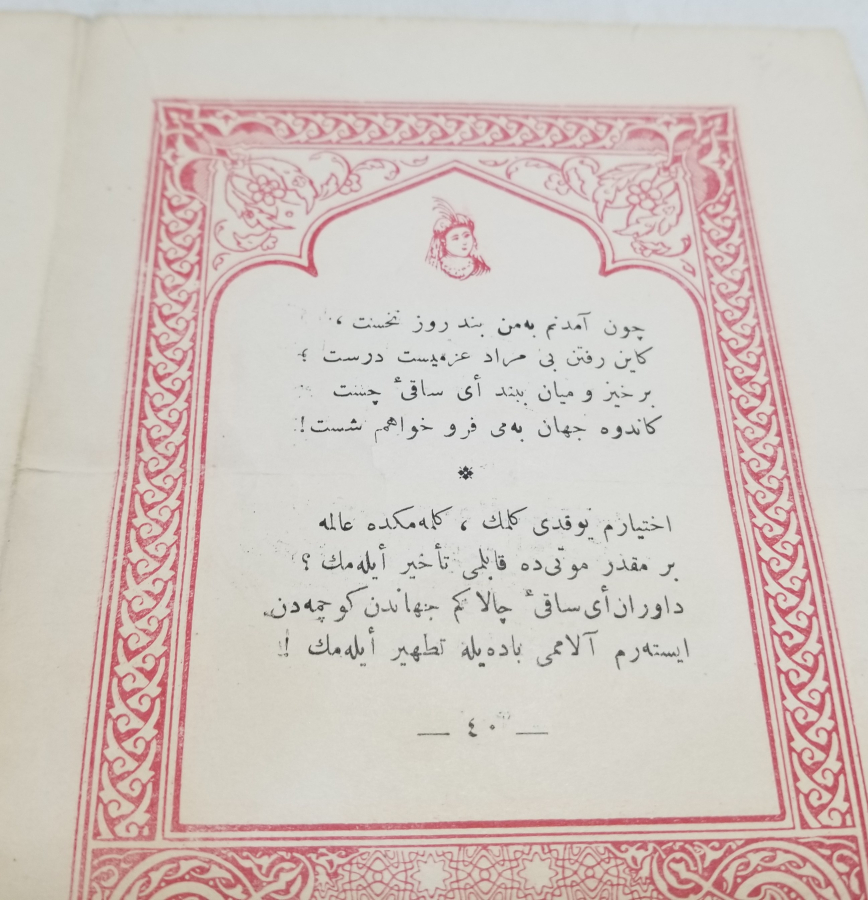 چون آمدنم به‌من بند روز نخست ،
کاین رفتن بی مراد عزمیست درست ؛
برخیز و میان ببند أی ساقیٴ چست
کاندوه جهان به‌می فرو خواهم شست!
اختیارم یوقدی کلمك ، کله‌مکده عالمه
بر مقدر موتی‌ده قابلمی تأخیر أیله‌مك ؟
داوران أی ساقیٴ چالاكم جهاندن کوچمه‌دن
ایسته‌رم آلاممی باده‌یله تطهیر أیله‌مك !
— ٤٠ —